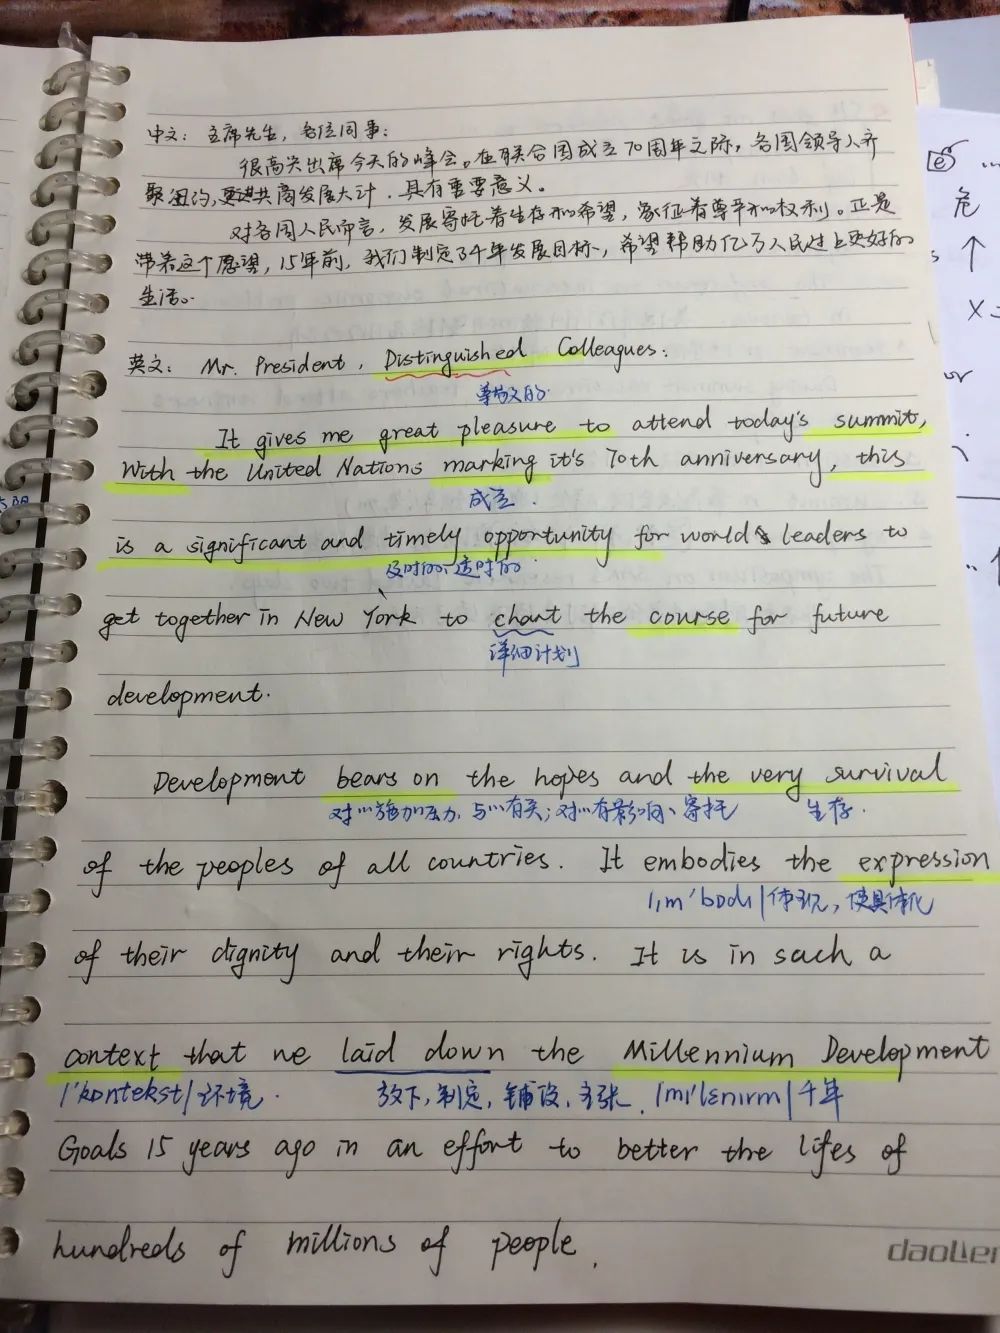 中文: 主席先生, 各位同事:
很高兴出席今天的峰会。在联合国成立70周年之际, 各国领导人齐
聚纽约, 共商发展大计, 具有重要意义。
对各国人民而言, 发展寄托着生存和希望, 象征着尊严和权利。正是
带着这个愿望, 15年前, 我们制定了千年发展目标, 希望帮助亿万人民过上更好的
生活。
英文: Mr. President, Distinguished Colleagues:
尊敬的
It gives me great pleasure to attend today's summit,
With the United Nations marking it's 70th anniversary, this
成立.
is a significant and timely opportunity for world leaders to
及时的、适时的
get together in New York to chart the course for future
详细计划
development.
Development bears on the hopes and the very survival
对…施加压力, 与…有关; 对…有影响、寄托 生存.
of the peoples of all countries. It embodies the expression
体现, 使具体化
of their dignity and their rights. It is in such a
context that we laid down the Millennium Development
/'kɒntekst/ 环境. 放下, 制定, 铺设, 主张. 千年
Goals 15 years ago in an effort to better the lifes of
hundreds of millions of people.
危
↑
or